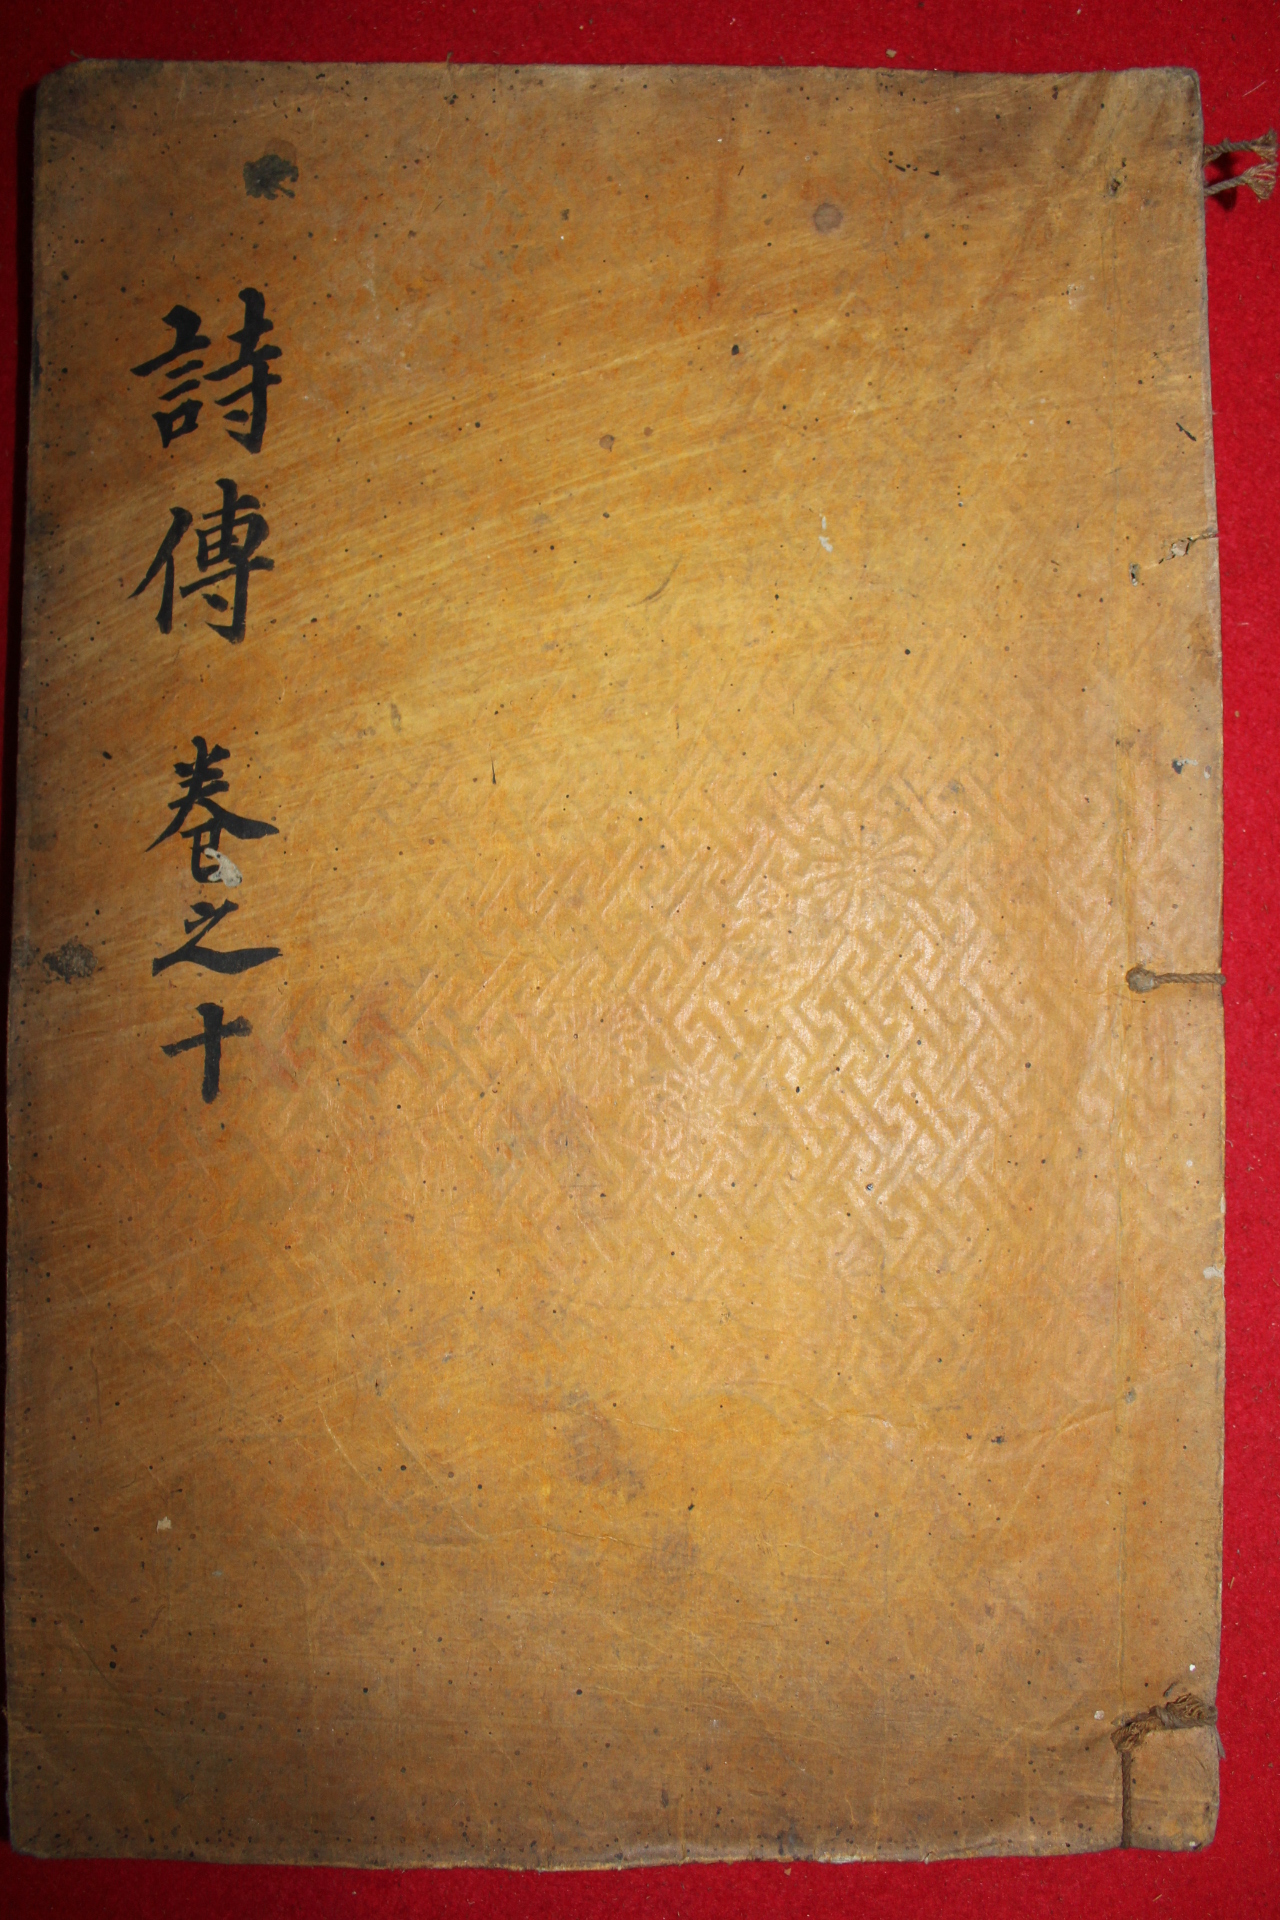 詩傳 卷之十